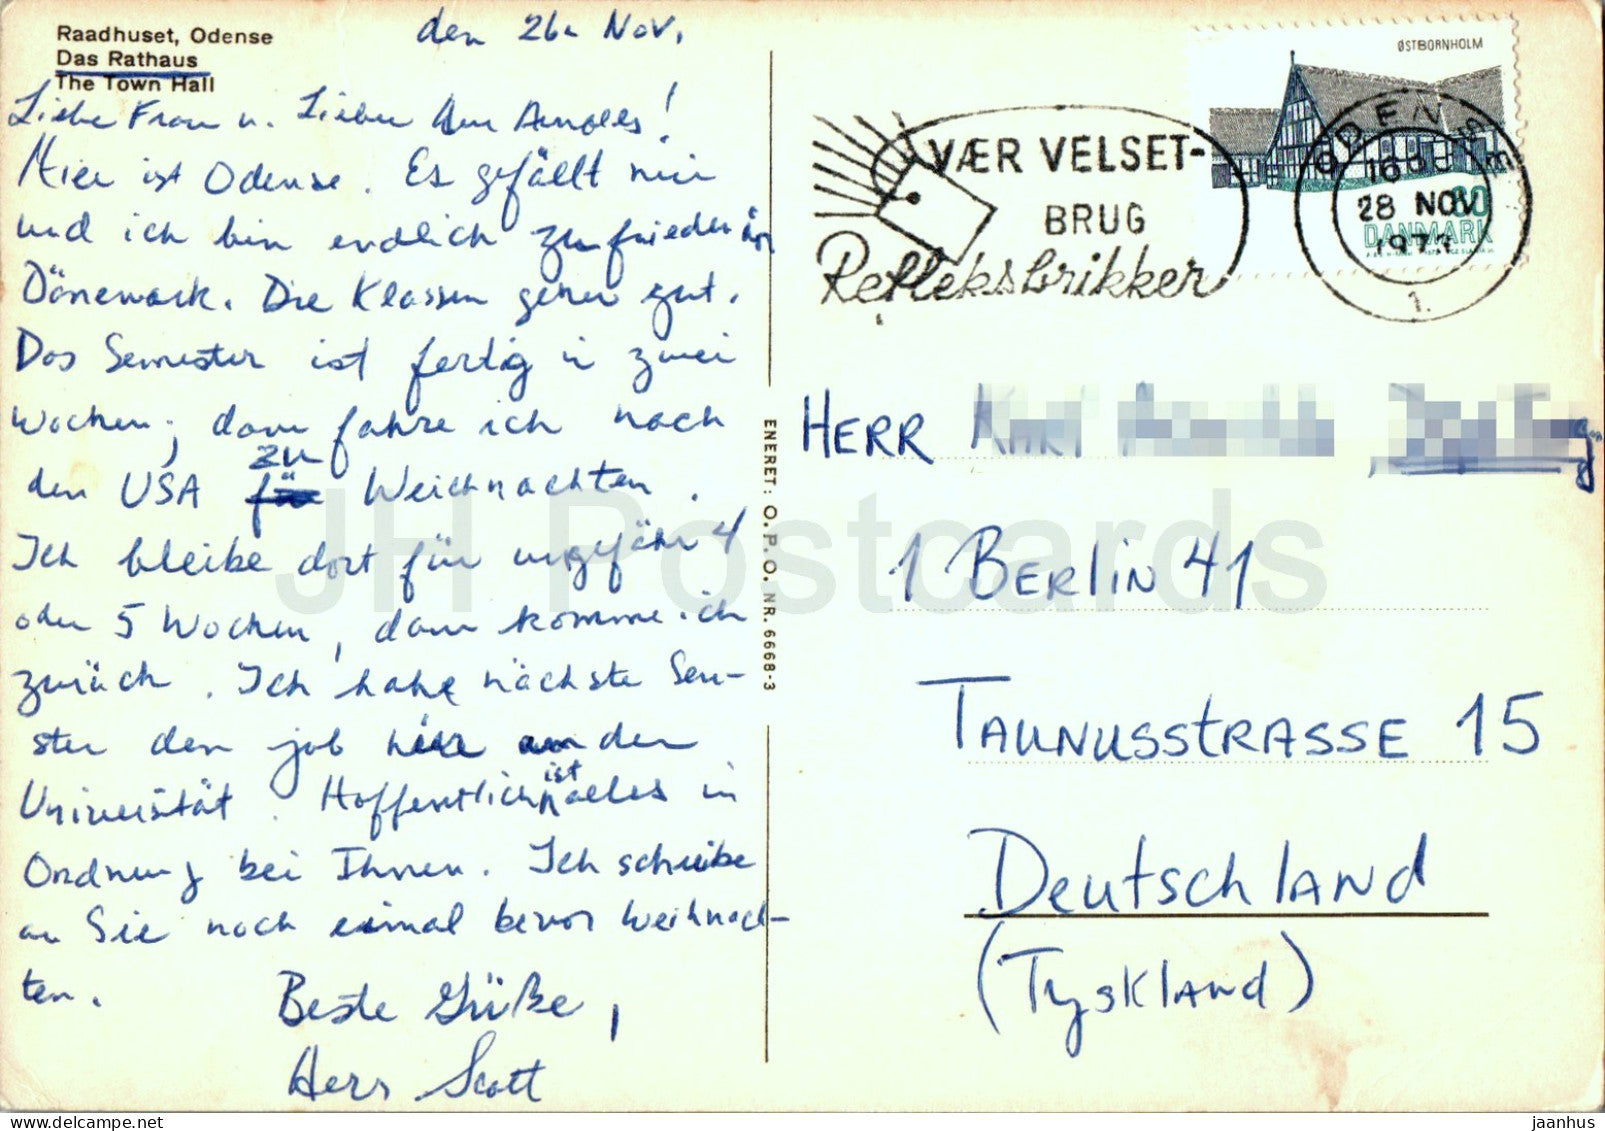 Raadhuset, Odense
Das Rathaus
The Town Hall
den 26. Nov.
Liebe Frau u. Lieber Herr
Hier ist Odense. Es gefällt mir
und ich bin endlich zufrieden in
Dänemark. Die Klassen gehen gut.
Das Semester ist fertig in zwei
Wochen; dann fahre ich nach
den USA zu Weichnachten.
Ich bleibe dort für ungefähr 4
oder 5 Wochen, dann komme ich
zurück. Ich habe nächste Sem-
ster den job hier an der
Universität. Hoffentlich ist alles in
Ordnung bei Ihnen. Ich schreibe
an Sie noch einmal bevor Weihnach-
ten.
Beste Grüße,
Herr Scott
ENERET: O. P. O. NR. 6668-3
VÆR VELSET-
BRUG
Refleksbrikker
ØSTBORNHOLM
DANMARK
ODENSE
28 NOV
1.
HERR
1 BERLIN 41
TAUNUSSTRASSE 15
DEUTSCHLAND
(TYSKLAND)
JH Postcards
www.hippostcard.com
jaanhus